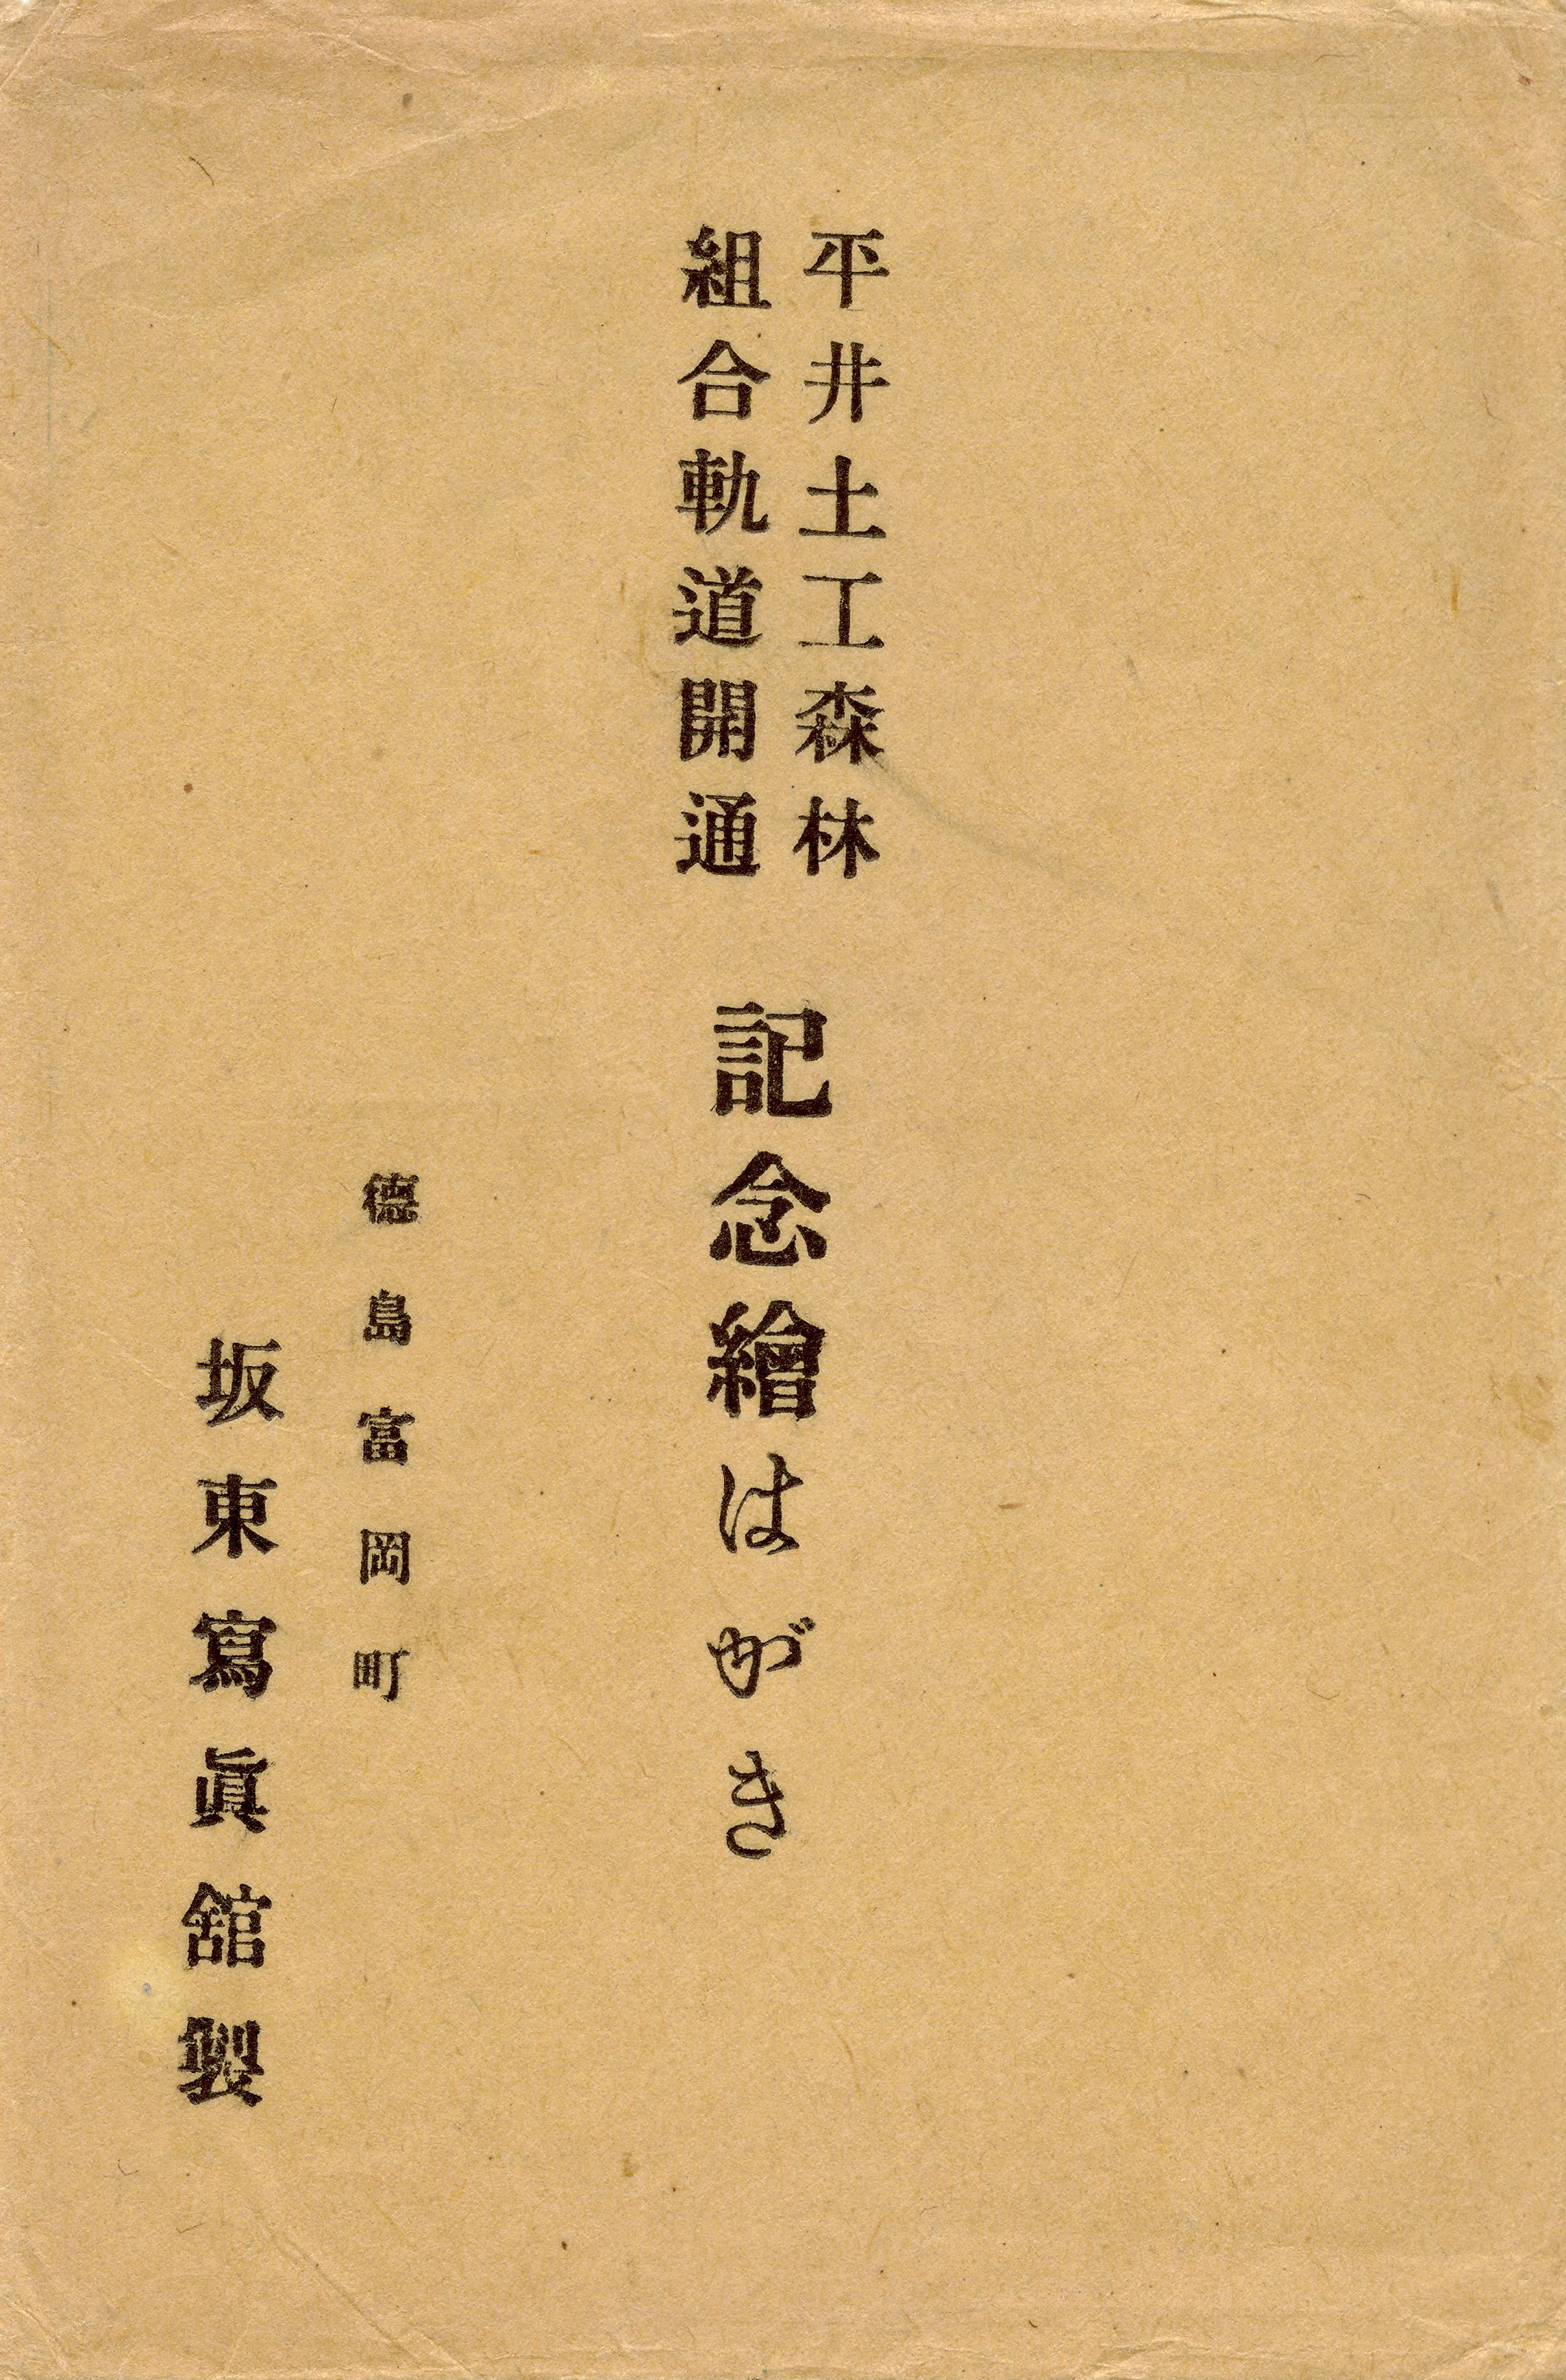 平井土工森林
組合軌道開通
記念繪はがき
德島富岡町
坂東寫眞舘製